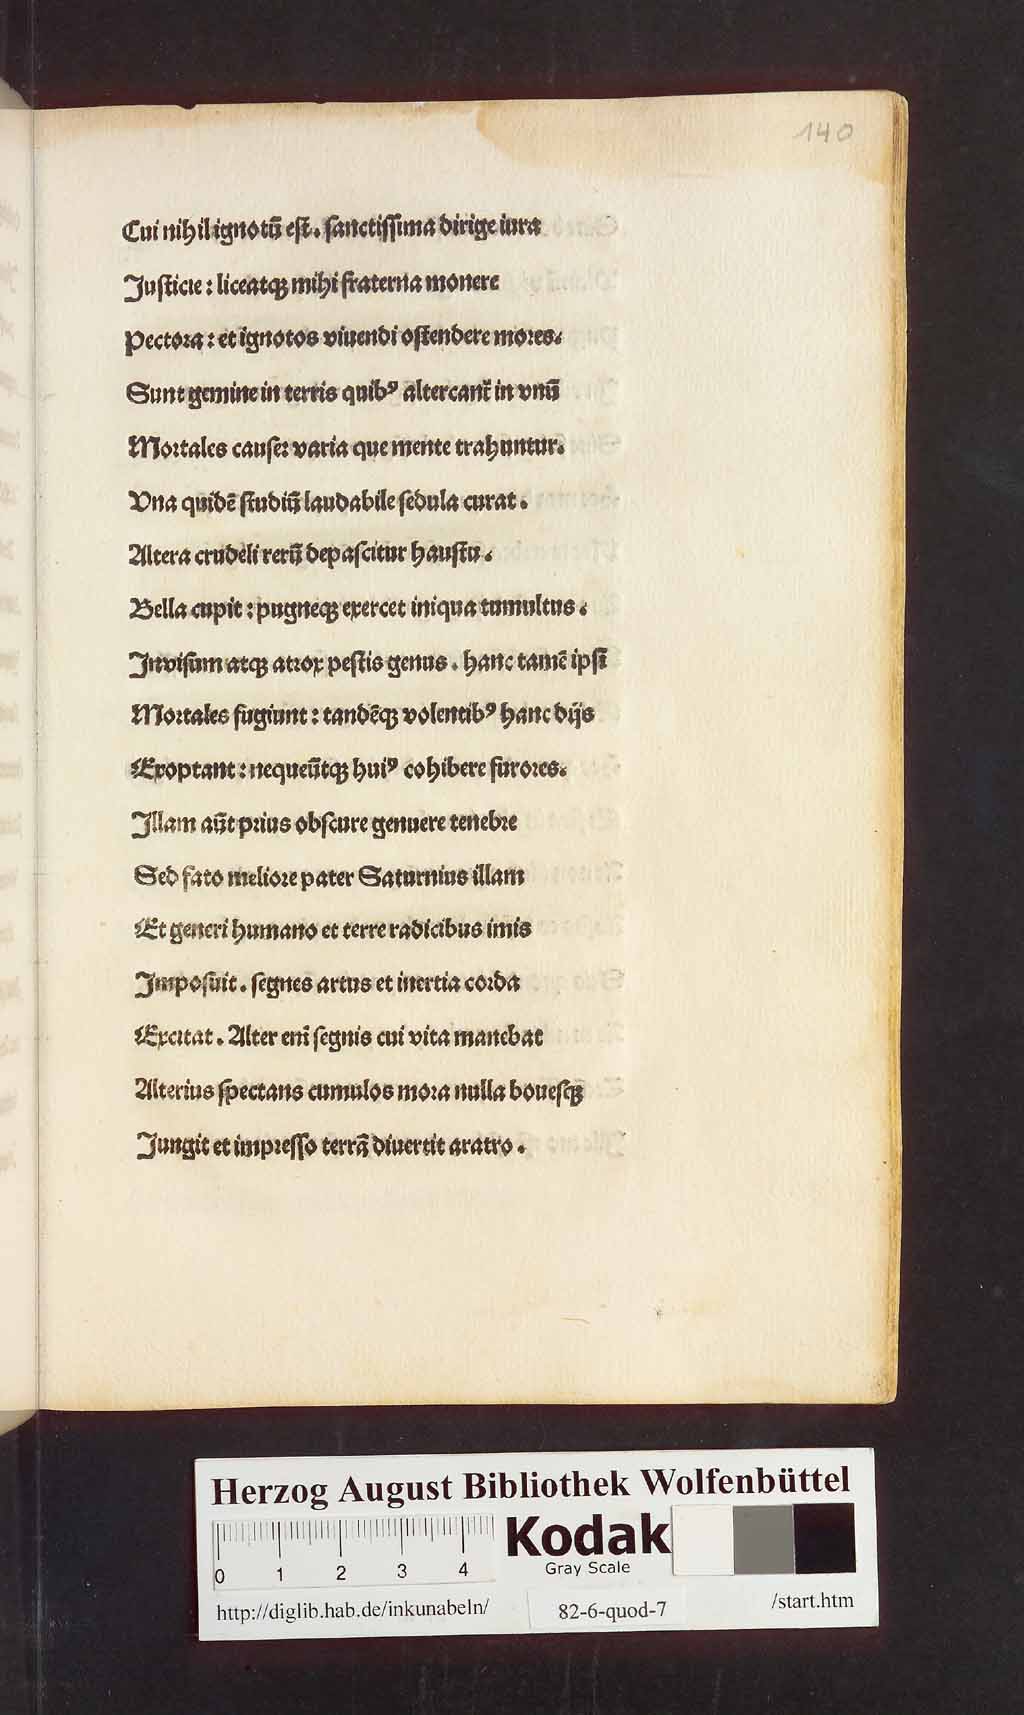 140
Cui nihil ignotū est. sanctissima dirige iura
Justicie: liceatqꝫ mihi fraterna monere
Pectora: et ignotos viuendi ostendere mores.
Sunt gemine in terris quibꝰ altercant̄ in vnū
Mortales cause: varia que mente trahuntur.
Vna quidē studiū laudabile sedula curat.
Altera crudeli rerū depascitur haustu.
Bella cupit: pugneqꝫ exercet iniqua tumultus.
Invisum atqꝫ atrox pestis genus. hanc tamē ipsi
Mortales fugiunt: tandēqꝫ volentibꝰ hanc dijs
Exoptant: nequeūtqꝫ huiꝰ cohibere furores.
Illam aūt prius obscure genuere tenebre
Sed fato meliore pater Saturnius illam
Et generi humano et terre radicibus imis
Imposuit. segnes artus et inertia corda
Excitat. Alter enī segnis cui vita manebat
Alterius spectans cumulos mora nulla bouesqꝫ
Jungit et impresso terrā diuertit aratro.
Herzog August Bibliothek Wolfenbüttel
0 1 2 3 4
Kodak
Gray Scale
http://diglib.hab.de/inkunabeln/ 82-6-quod-7 /start.htm